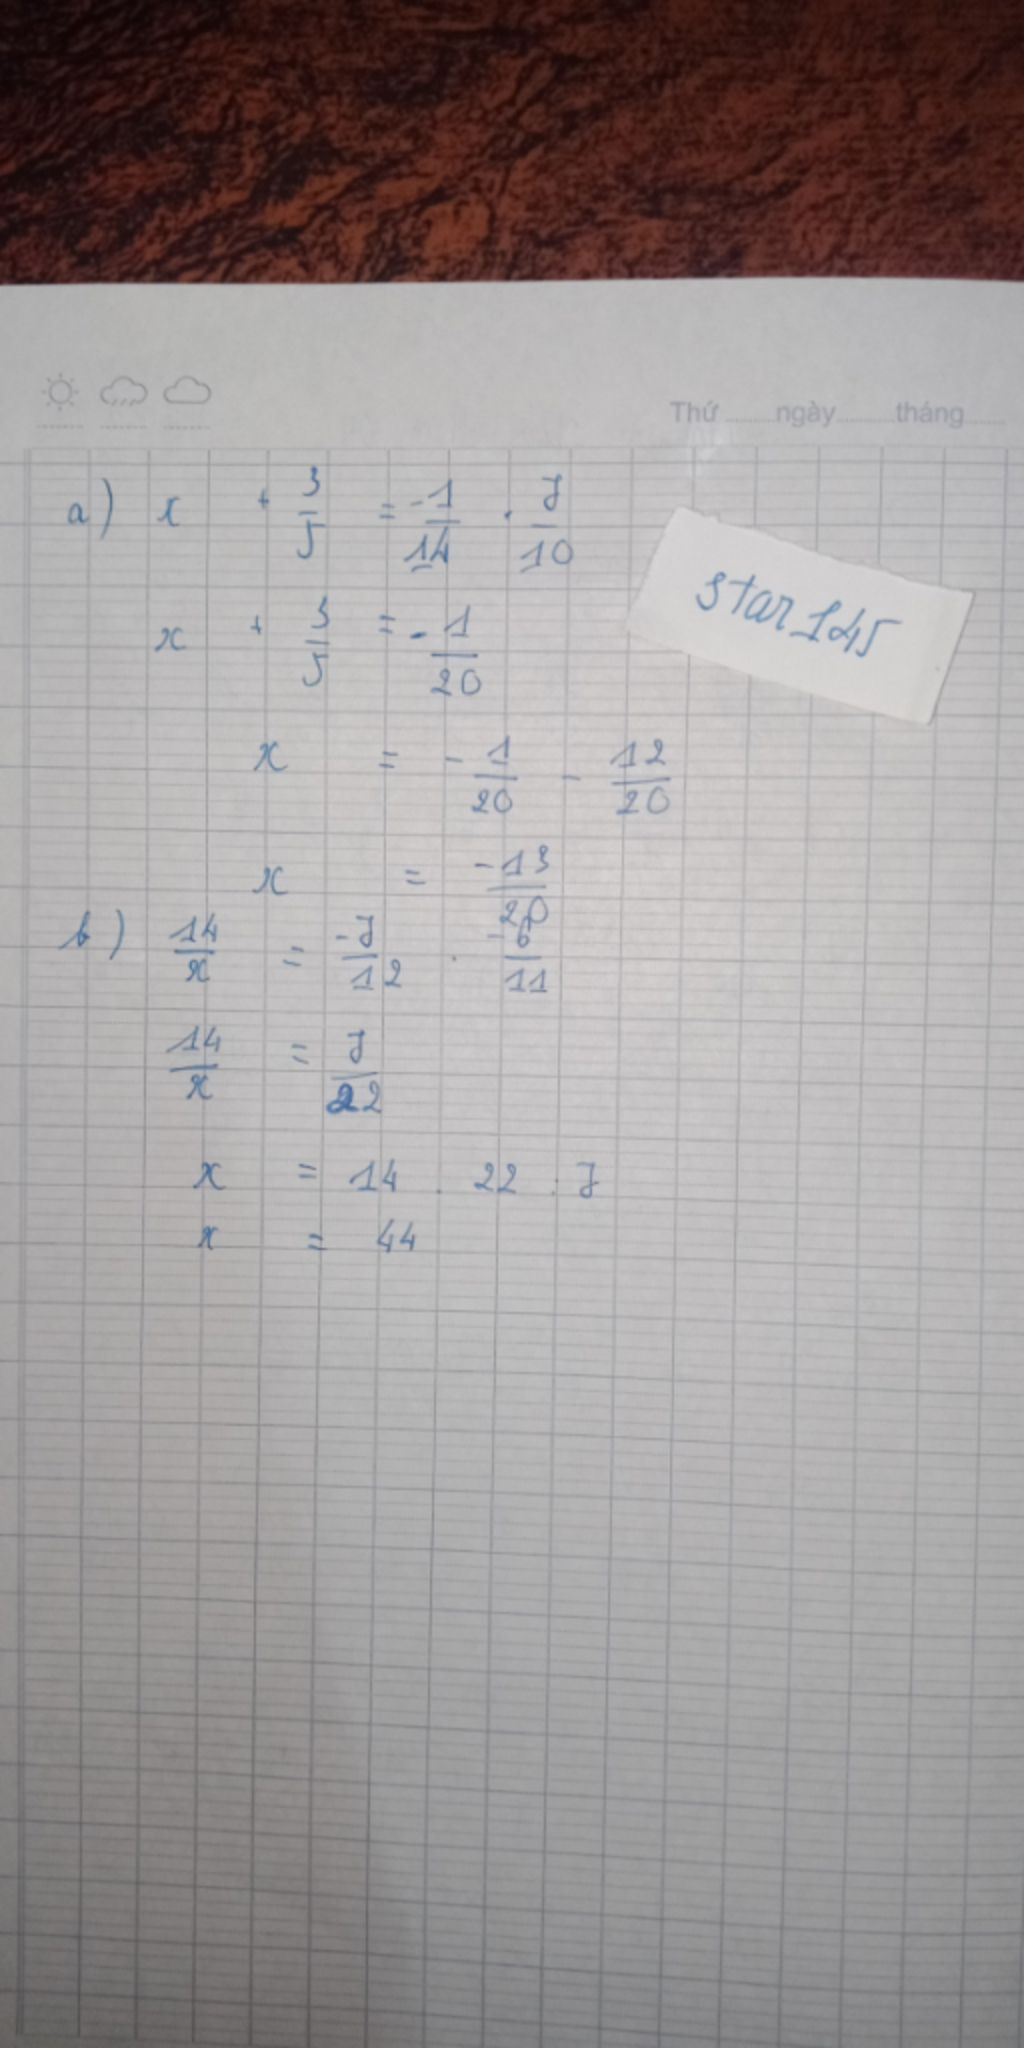 Thứ ngày tháng
a) x + 3/5 = -1/14 . 7/10
star145
x + 3/5 = -1/20
x = -1/20 - 12/20
x = -13/20
b) 14/x = -7/12 . -6/11
14/x = 7/22
x = 14 . 22 : 7
x = 44